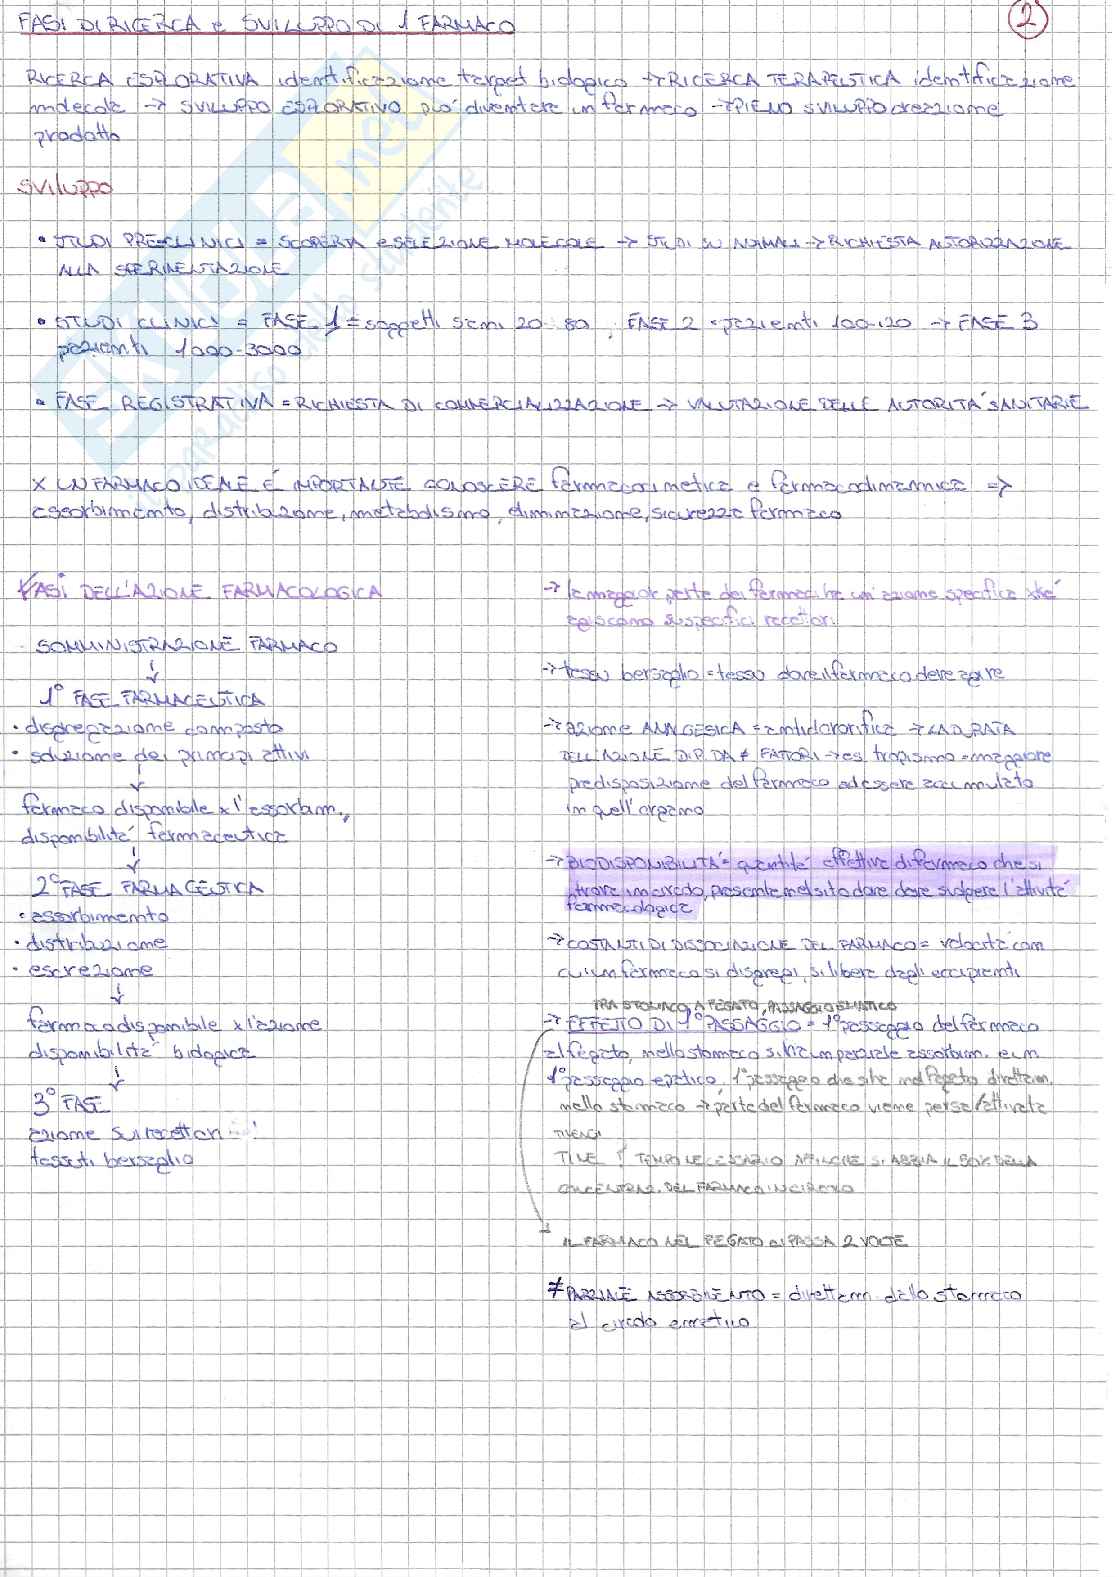 FASI DI RICERCA e SVILUPPO DI 1 FARMACO
2
RICERCA ESPLORATIVA identificazione target biologico → RICERCA TERAPEUTICA identificazione
molecole → SVILUPPO ESPLORATIVO può diventare un farmaco → PIENO SVILUPPO creazione
prodotto
SVILUPPO
• STUDI PRE-CLINICI = SCOPERTA e SELEZIONE MOLECOLE → STUDI SU → RICHIESTA AUTORIZZAZIONE
ALLA SPERIMENTAZIONE
• STUDI CLINICI = FASE 1 = soggetti sani 20-80, FASE 2 = pazienti 100-120 → FASE 3
pazienti 1000-3000
• FASE REGISTRATIVA = RICHIESTA DI COMMERCIALIZZAZIONE → VALUTAZIONE DELLE AUTORITÀ SANITARIE
X UN FARMACO IDEALE È IMPORTANTE CONOSCERE farmacocinetica e farmacodinamica ⇒
assorbimento, distribuzione, metabolismo, eliminazione, sicurezza farmaco
FASI DELL'AZIONE FARMACOLOGICA
SOMMINISTRAZIONE FARMACO
↓
1° FASE FARMACEUTICA
• disgregazione composto
• soluzione dei principi attivi
↓
farmaco disponibile x l'assorbim.,
disponibilità farmaceutica
↓
2° FASE FARMACEUTICA
• assorbimento
• distribuzione
• escrezione
↓
farmaco disponibile x l'azione
disponibilità biologica
↓
3° FASE
azione sui recettori
tessuti bersaglio
→ la maggior parte dei farmaci ha un'azione specifica xké
agiscono su specifici recettori
→ tessu bersaglio = tessu dove il farmaco deve agire
→ azione ANALGESICA = antidolorifica → LA DURATA
DELL'AZIONE DIP. DA ≠ FATTORI → es. tropismo = maggiore
predisposizione del farmaco ad essere accumulato
in quell'organo
→ BIODISPONIBILITÀ = quantità effettiva di farmaco che si
trova in circolo, presente nel sito dove deve svolgere l'attività
farmacologica
→ COSTANTI DI DISSOCIAZIONE DEL FARMACO = velocità con
cui un farmaco si disgrega, si libera dagli eccipienti
TRA STOMACO A FEGATO, PASSAGGIO EMATICO
→ EFFETTO DI 1° PASSAGGIO = 1° passaggio del farmaco
al fegato, nello stomaco si ha un parziale assorbim. e un
1° passaggio epatico, 1° passaggio che si ha nel fegato direttam.
nello stomaco → parte del farmaco viene persa/attivata
TIME TEMPO NECESSARIO AFFINCHÈ SI ABBIA IL 50% DELLA
CONCENTRAZ. DEL FARMACO IN CIRCOLO
IL FARMACO NEL FEGATO CI PASSA 2 VOLTE
≠ PARZIALE ASSORBIMENTO = direttam. dallo stomaco
al circolo ematico